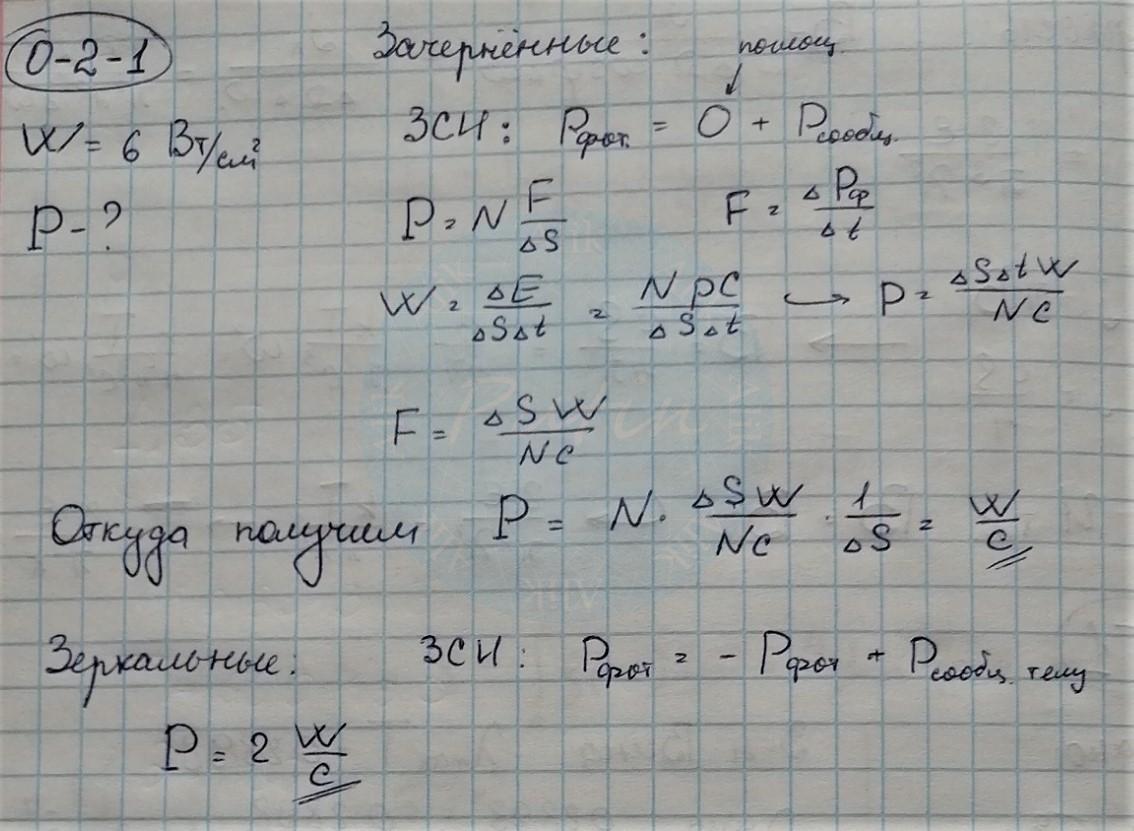 0-2-1
Зачернённые: поглощ.
W = 6 Вт/см²
ЗСИ: Pфот. = 0 + Pсообщ.
P - ?
P = N F/ΔS F = ΔPф/Δt
W = ΔE/ΔSΔt = Npc/ΔSΔt → p = ΔSΔtW/Nc
F = ΔSW/Nc
Откуда получим P = N · ΔSW/Nc · 1/ΔS = W/c
Зеркальные: ЗСИ: Pфот = - Pфот + Pсообщ. телу
P = 2 W/c